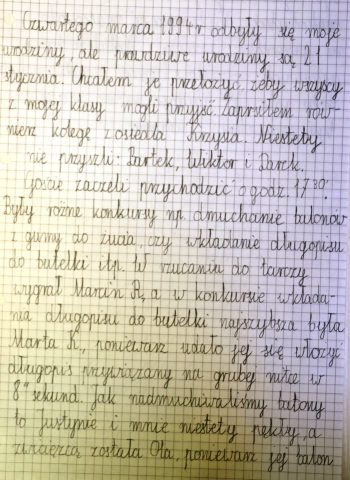 Czwartego marca 1994 r odbyły się moje
urodziny, ale prawdziwe urodziny są 21
stycznia. Chciałem je przełożyć żeby wszyscy
z mojej klasy mogli przyjść. Zaprsiłem rów-
nierz kolegę z osiedla Krzysia. Niestety
nie przyszli: Bartek, Wiktor i Darek.
Goście zaczeli przychodzić o godz. 17³⁰.
Były rożne konkursy np. dmuchanie balonów
z gumy do żucia, czy wkładanie długopisu
do butelki itp. W rzucaniu do tarczy
wygrał Marcin R, a w konkursie wkłada-
nia długopisu do butelki najszybsza była
Marta K., poniewarz udało jej się włożyć
długopis przywiązany na grubej nitce w
8" sekund. Jak nadmuchiwaliśmy balony
to Justynie i mnie niestety pękły, a
zwiercą została Ola, poniewarz jej balon